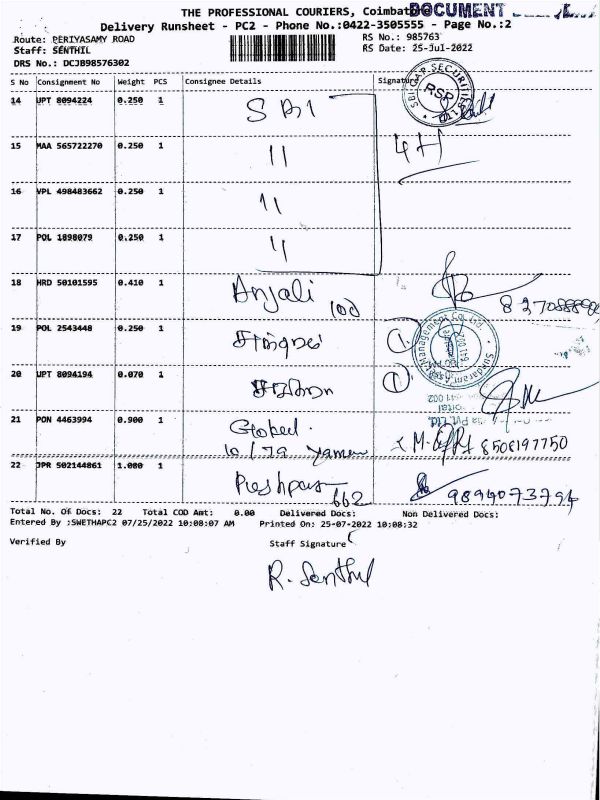 THE PROFESSIONAL COURIERS, Coimbatore
DOCUMENT
Delivery Runsheet - PC2 - Phone No.:0422-3505555 - Page No.:2
Route: PERIYASAMY ROAD
RS No.: 985763
Staff: SENTHIL
RS Date: 25-Jul-2022
DRS No.: DCJB98576302
S No Consignment No Weight PCS Consignee Details Signature
14 UPT 8094224 0.250 1 SBI
SBICAP SECURITIES LTD
RSP
15 MAA 565722270 0.250 1 11 4H
16 VPL 498483662 0.250 1 11
17 POL 1898079 0.250 1 11
18 HRD 50101595 0.410 1 Anjali 100
19 POL 2543448 0.250 1 ①
Sundaram Asset Management Co. Ltd.
20 UPT 8094194 0.070 1 ①
641 002
Pvt. Ltd.
21 PON 4463994 0.900 1 Global.
8508197750
22 JPR 502144861 1.000 1 662 9894073794
Total No. Of Docs: 22 Total COD Amt: 0.00 Delivered Docs: Non Delivered Docs:
Entered By :SWETHAPC2 07/25/2022 10:08:07 AM Printed On: 25-07-2022 10:08:32
Verified By Staff Signature
R. Senthil